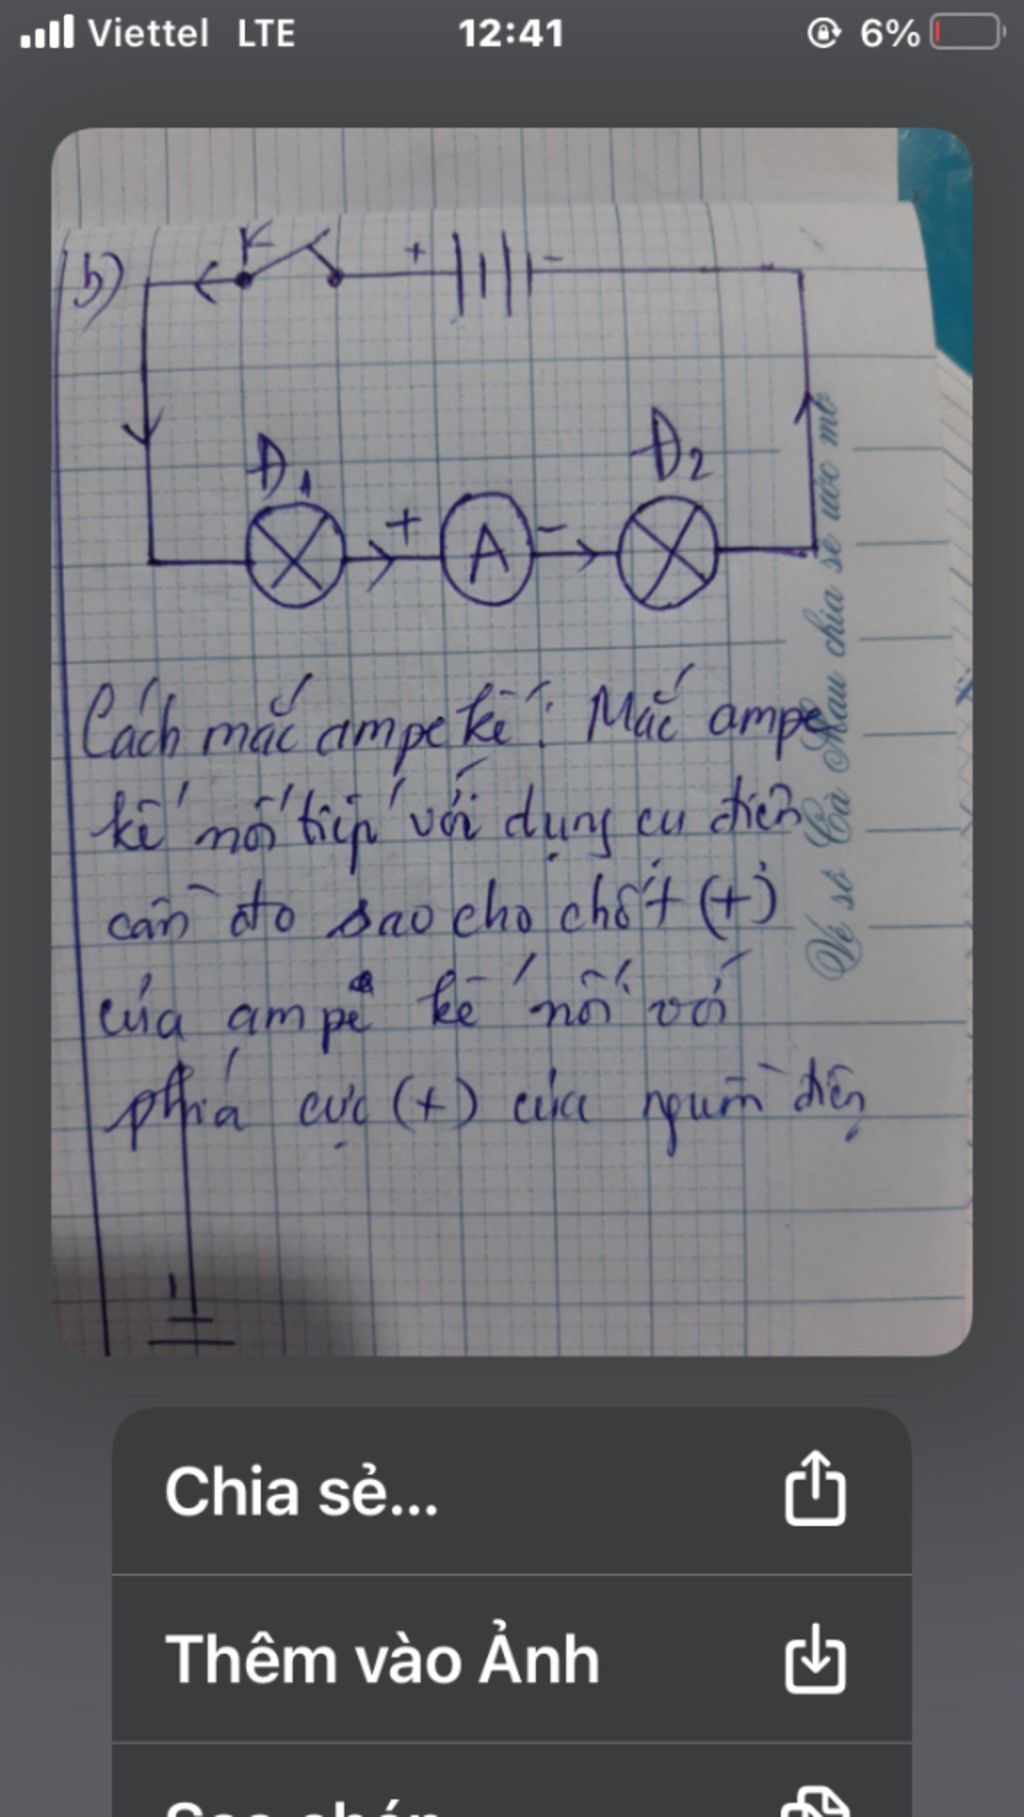 Viettel LTE 12:41 6%
b) K + -
Đ1 + A - Đ2
Cách mắc ampe kế: Mắc ampe
kế nối tiếp với dụng cụ điện
cần đo sao cho chốt (+)
của ampe kế nối với
phía cực (+) của nguồn điện
Vé số Cà Mau chia sẻ ước mơ
Chia sẻ...
Thêm vào Ảnh
Sao chép